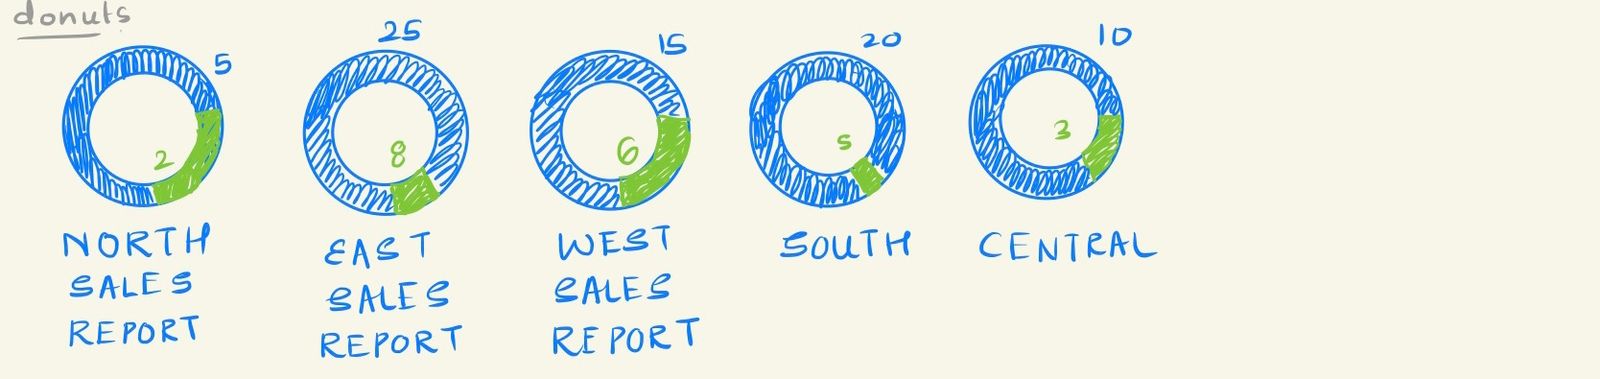 donuts
5
2
NORTH
SALES
REPORT
25
8
EAST
SALES
REPORT
15
6
WEST
SALES
REPORT
20
5
SOUTH
10
3
CENTRAL